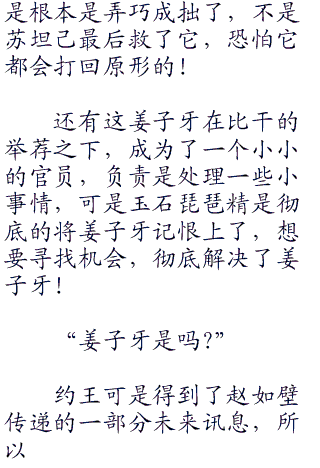 是根本是弄巧成拙了，不是
苏坦己最后救了它，恐怕它
都会打回原形的！
还有这姜子牙在比干的
举荐之下，成为了一个小小
的官员，负责是处理一些小
事情，可是玉石琵琶精是彻
底的将姜子牙记恨上了，想
要寻找机会，彻底解决了姜
子牙！
“姜子牙是吗?”
约王可是得到了赵如壁
传递的一部分未来讯息，所
以